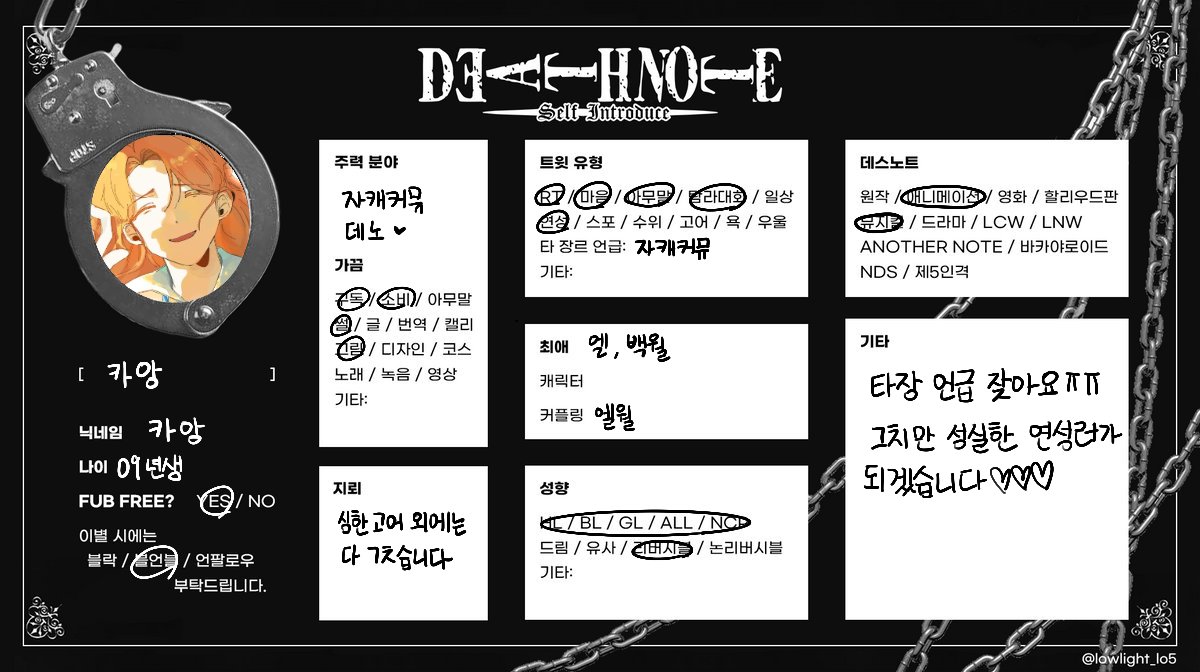 DEATHNOTE
Self Introduce
[ 카앙 ]
닉네임 카앙
나이 09년생
FUB FREE? YES / NO
이별 시에는
블락 / 블언블 / 언팔로우
부탁드립니다.
주력 분야
자캐커뮤
데노 ♥
가끔
구독 / 소비 / 아무말
썰 / 글 / 번역 / 캘리
그림 / 디자인 / 코스
노래 / 녹음 / 영상
기타:
지뢰
심한 고어 외에는
다 ㄱㅊ습니다
트윗 유형
RT / 마음 / 아무말 / 탐라대화 / 일상
연성 / 스포 / 수위 / 고어 / 욕 / 우울
타 장르 언급: 자캐커뮤
기타:
최애 엘, 백월
캐릭터
커플링 엘월
성향
HL / BL / GL / ALL / NCP
드림 / 유사 / 리버시블 / 논리버시블
기타:
데스노트
원작 / 애니메이션 / 영화 / 할리우드판
뮤지컬 / 드라마 / LCW / LNW
ANOTHER NOTE / 바카야로이드
NDS / 제5인격
기타
타장 언급 잦아요ㅠㅠ
그치만 성실한 연성러가
되겠습니다♡♡♡
@lowlight_lo5